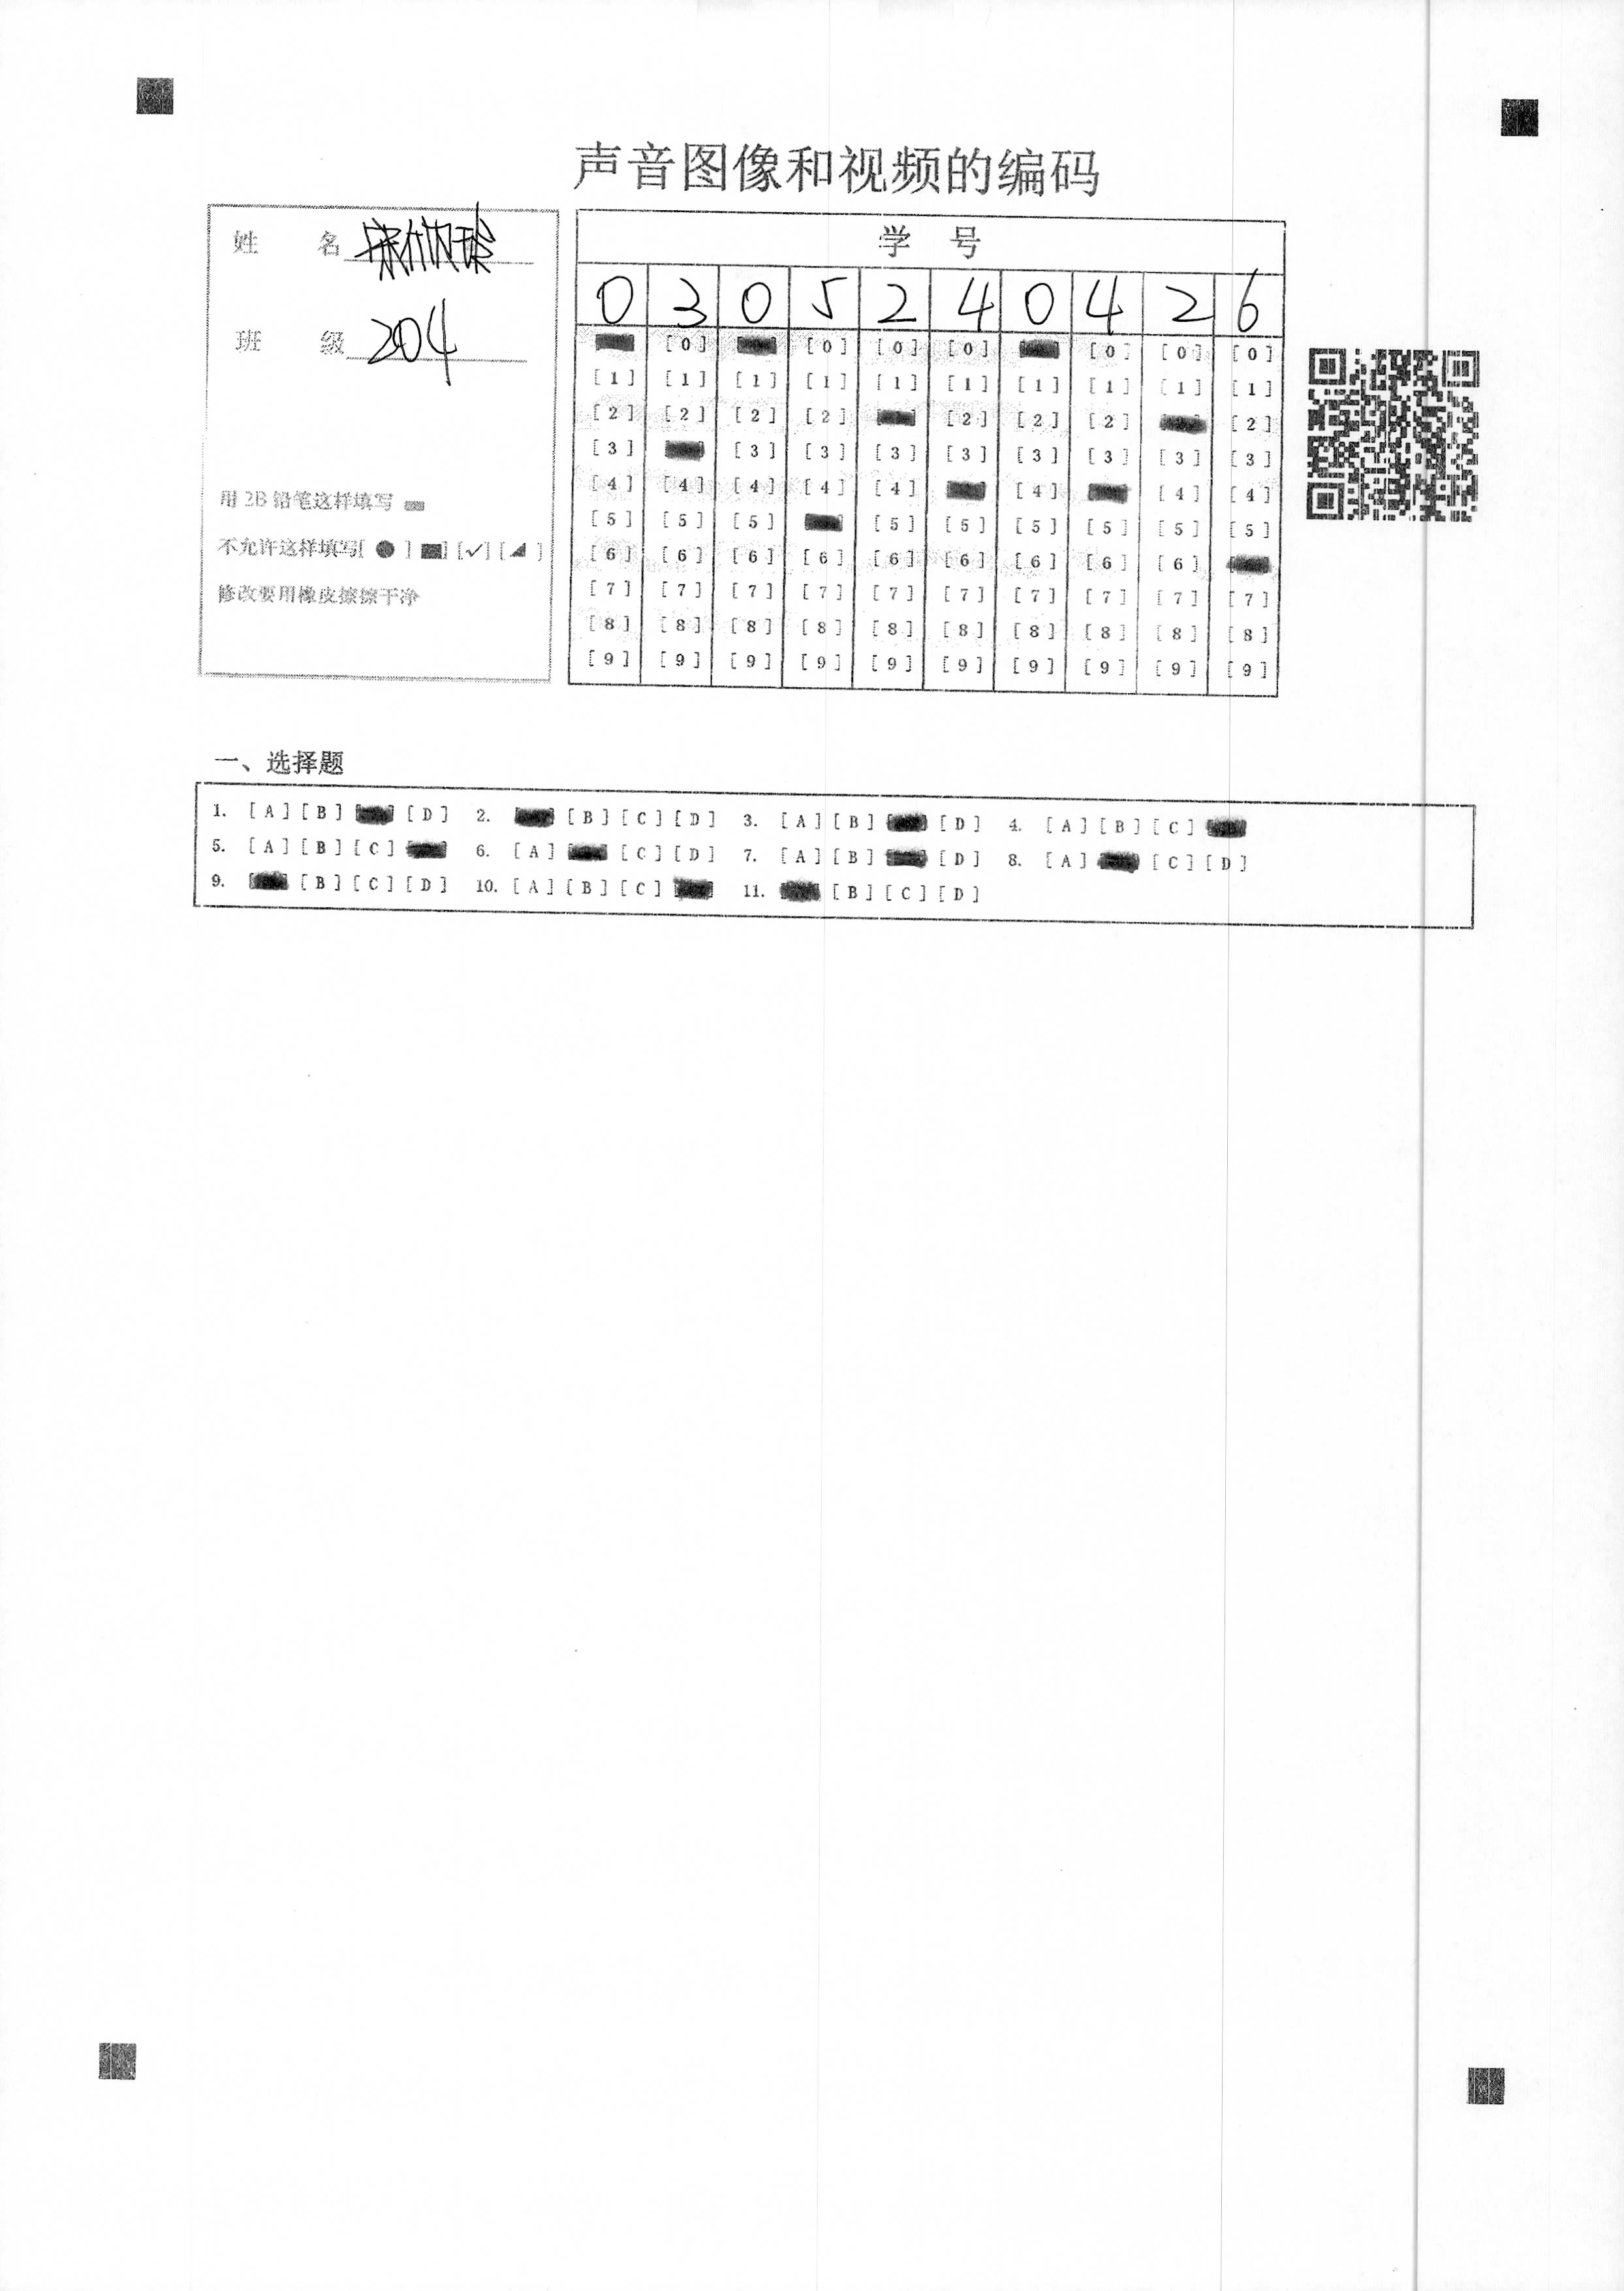 声音图像和视频的编码
姓 名
班 级 204
用 2B 铅笔这样填写
不允许这样填写[ ● ] ■] [✓] [◢ ]
修改要用橡皮擦擦干净
学 号
0 3 0 5 2 4 0 4 2 6
[0] [0] [0] [0] [0] [0] [0]
[1] [1] [1] [1] [1] [1] [1] [1] [1] [1]
[2] [2] [2] [2] [2] [2] [2] [2]
[3] [3] [3] [3] [3] [3] [3] [3] [3]
[4] [4] [4] [4] [4] [4] [4] [4]
[5] [5] [5] [5] [5] [5] [5] [5] [5]
[6] [6] [6] [6] [6] [6] [6] [6] [6]
[7] [7] [7] [7] [7] [7] [7] [7] [7] [7]
[8] [8] [8] [8] [8] [8] [8] [8] [8] [8]
[9] [9] [9] [9] [9] [9] [9] [9] [9] [9]
一、选择题
1. [A] [B] [D] 2. [B] [C] [D] 3. [A] [B] [D] 4. [A] [B] [C]
5. [A] [B] [C] 6. [A] [C] [D] 7. [A] [B] [D] 8. [A] [C] [D]
9. [B] [C] [D] 10. [A] [B] [C] 11. [B] [C] [D]